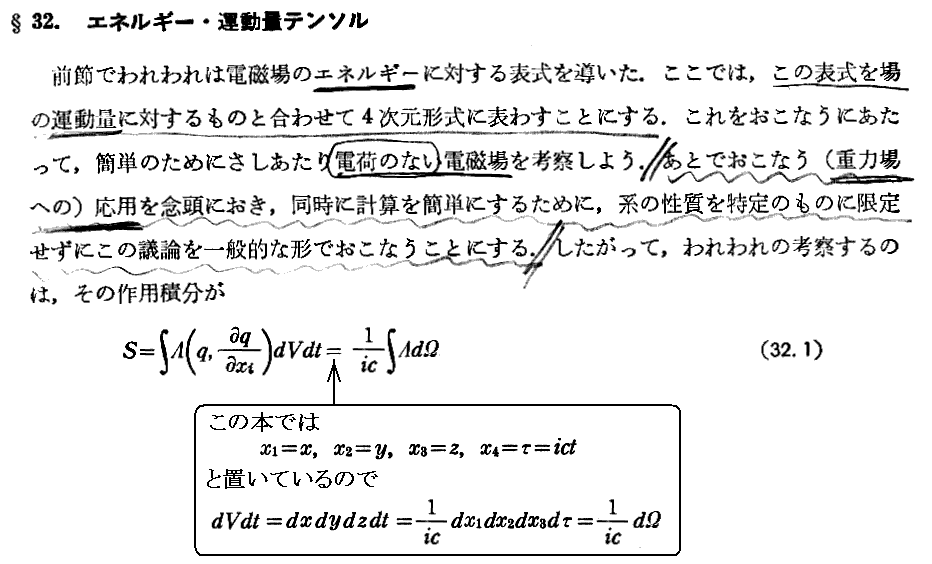 § 32. エネルギー・運動量テンソル
前節でわれわれは電磁場のエネルギーに対する表式を導いた．ここでは，この表式を場
の運動量に対するものと合わせて4次元形式に表わすことにする．これをおこなうにあた
って，簡単のためにさしあたり電荷のない電磁場を考察しよう．あとでおこなう（重力場
への）応用を念頭におき，同時に計算を簡単にするために，系の性質を特定のものに限定
せずにこの議論を一般的な形でおこなうことにする．したがって，われわれの考察するの
は，その作用積分が
S=∫Λ(q, ∂q/∂xi)dVdt = 1/ic ∫ΛdΩ (32.1)
この本では
x₁=x, x₂=y, x₃=z, x₄=τ=ict
と置いているので
dVdt=dxdydzdt=1/ic dx₁dx₂dx₃dτ=1/ic dΩ